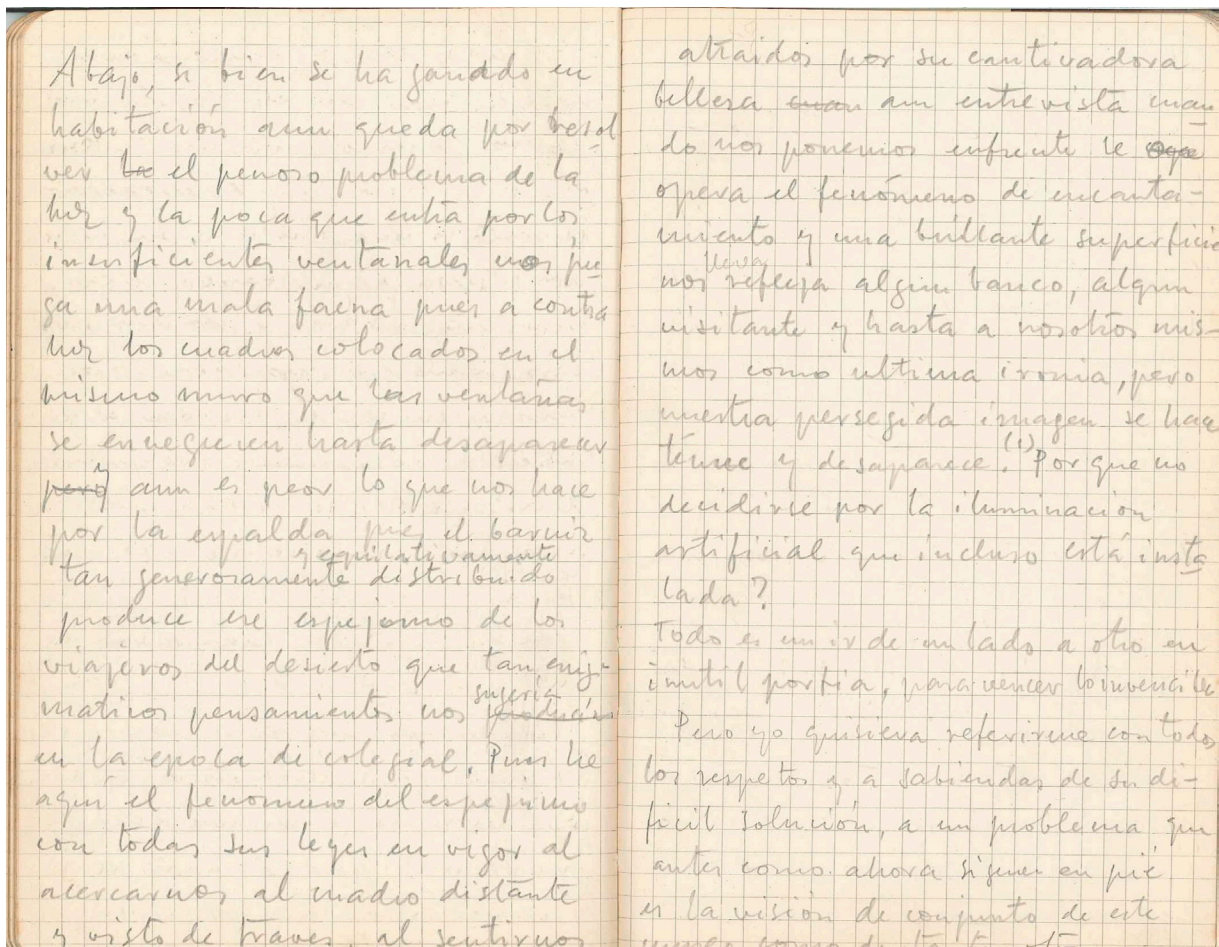 Abajo, si bien se ha ganado en
habitación aun queda por resol
ver la el penoso problema de la
luz y la poca que entra por los
insuficientes ventanales nos jue
ga una mala faena pues a contra
luz los cuadros colocados en el
mismo muro que las ventanas
se ennegrecen hasta desaparecer
pero y aun es peor lo que nos hace
por la espalda pues el barniz
y equitativamente
tan generosamente distribuido
produce ese espejismo de los
viajeros del desierto que tan enig-
sugería
maticos pensamientos nos producían
en la epoca de colegial. Pues he
aqui el fenomeno del espejismo
con todas sus leyes en vigor al
acercarnos al cuadro distante
y visto de traves, al sentirnos
atraidos por su cautivadora
belleza cuan aun entrevista cuan
do nos ponemos enfrente se ope
opera el fenómeno de encanta-
miento y una brillante superficie
lleva
nos refleja algun banco, algun
visitante y hasta a nosotros mis-
mos como ultima ironia, pero
nuestra persegida imagen se hace
tenue y desaparece. (1) Por que no
decidirse por la iluminación
artificial que incluso está insta
lada?
Todo es un ir de un lado a otro en
inutil porfia, para vencer lo invencible
Pero yo quisiera referirme con todos
los respetos y a sabiendas de su di-
ficil solución, a un problema que
antes como ahora siguen en pié
es la visión de conjunto de este